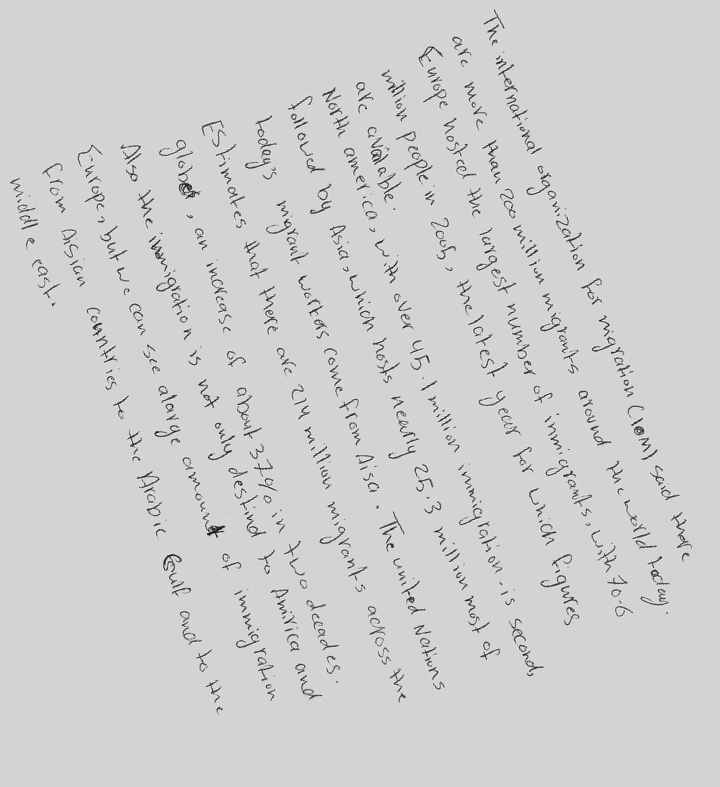 The international organization for migration (IOM) said there
are more than 200 million migrants around the world today.
Europe hosted the largest number of immigrants, with 70.6
million people in 2005, the latest year for which figures
are available.
North america, with over 45.1 million immigration, is second,
followed by Asia, which hosts nearly 25.3 million most of
today's migrant workers come from Aisa. The united Nations
Estimates that there are 214 million migrants across the
globe, an increase of about 37% in two decades.
Also the immigration is not only destind to Amirica and
Europe, but we can see alarge amount of immigration
from Aisian countries to the Arabic Gulf and to the
middle east.